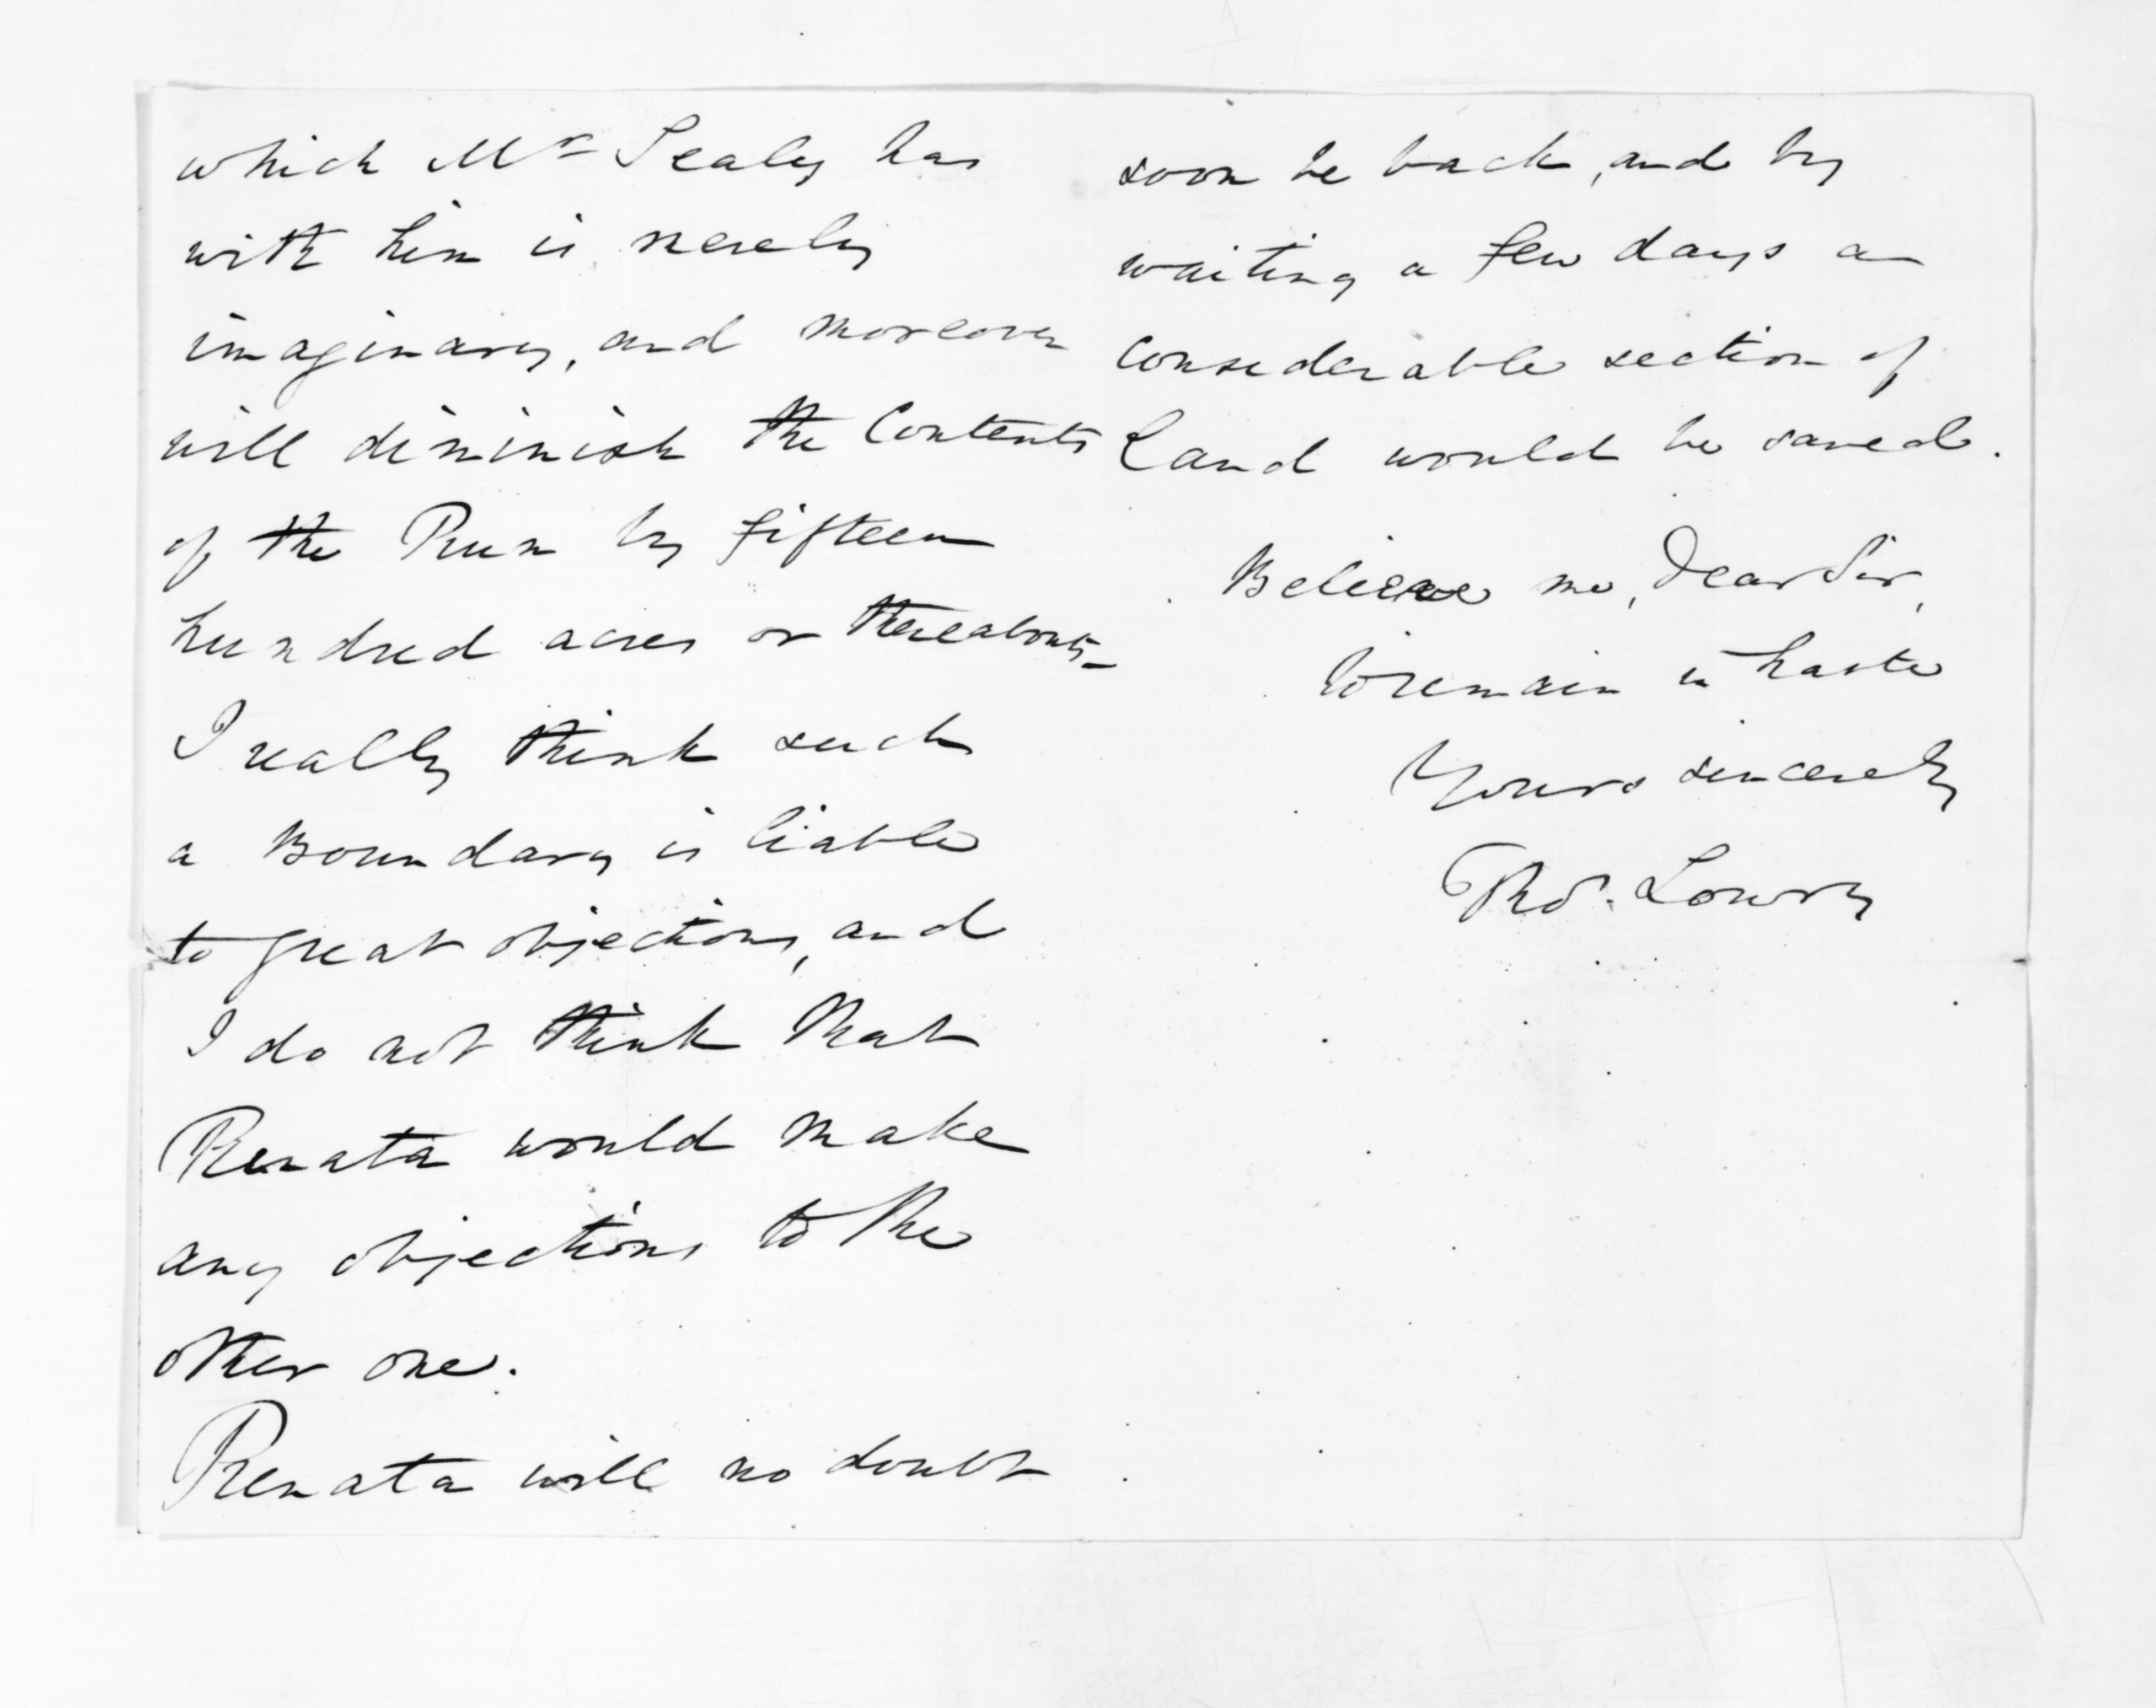 which Mr Sealy has
with him is merely
imaginary, and moreover
will diminish the Contents
of the Run by fifteen
hundred acres or thereabouts -
I really think such
a Boundary is liable
to great objections, and
I do not think that
Renata would make
any objections to the
other one.
Renata will no doubt
soon be back, and by
waiting a few days a
considerable section of
Land would be saved.
Believe me, Dear Sir,
to remain in haste
Yours sincerely
Thos. Lowry